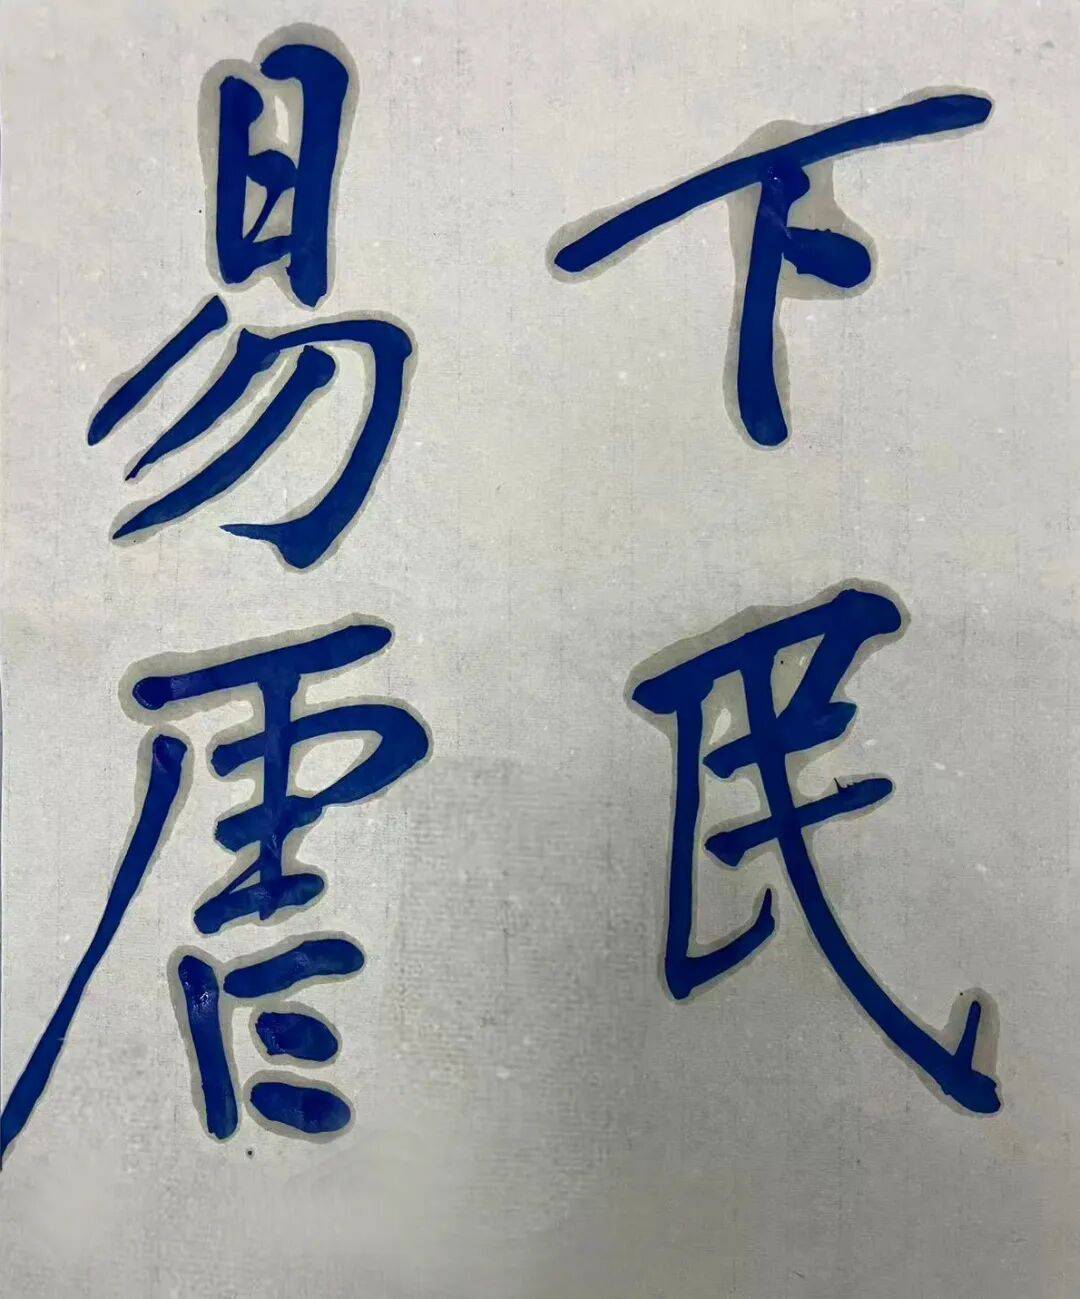 下民
易虐